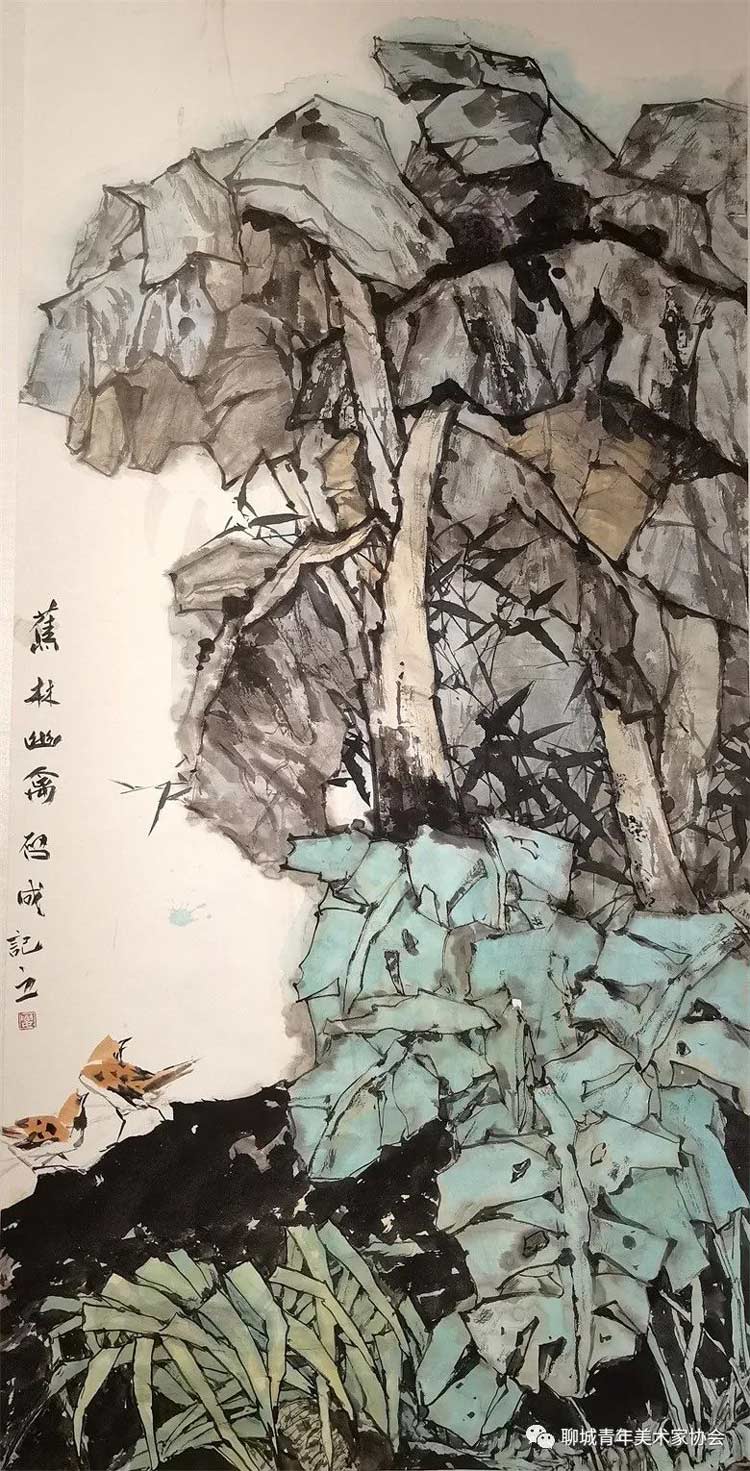 蕉林幽禽 啟成記之
聊城青年美术家协会